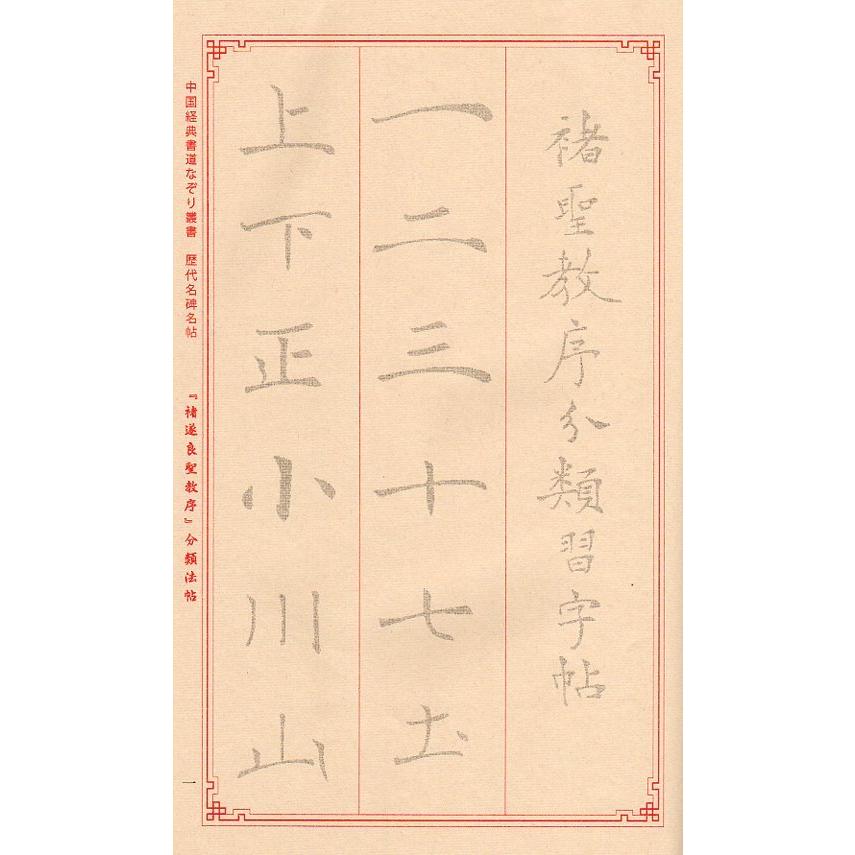 褚聖教序分類習字帖
一二三十七圡
上下正小川山
中国経典書道なぞり叢書　歴代名碑名帖　『褚遂良聖教序』分類法帖
一